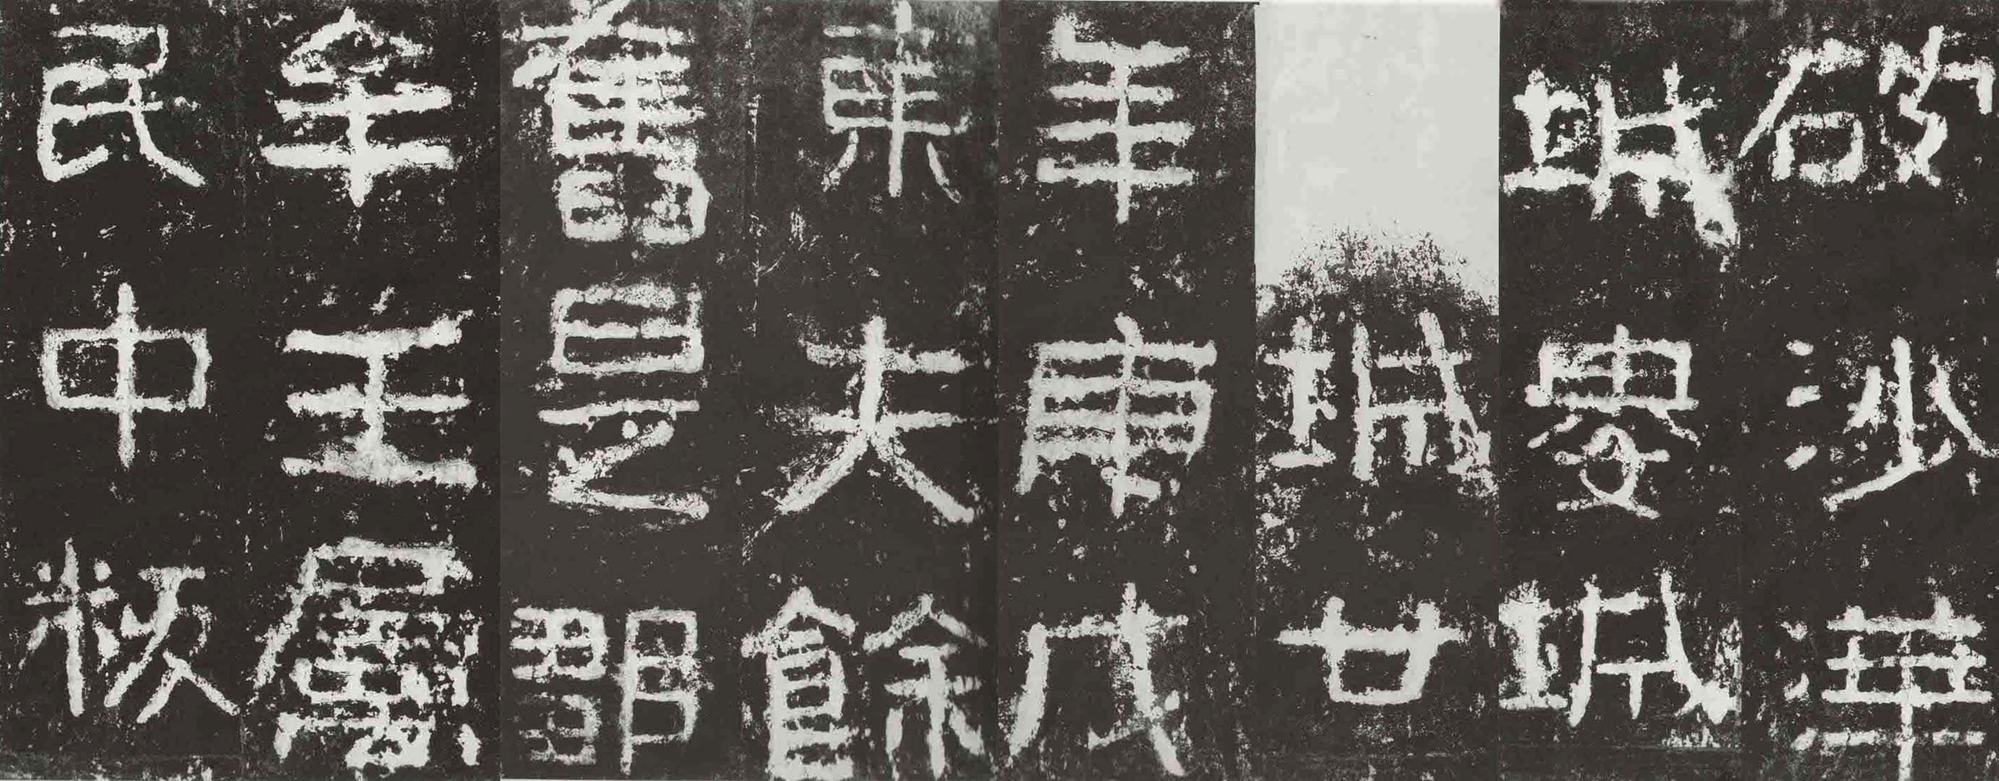 破沙溝
城婁城
城廿
年庚戌
東夫餘
舊是鄒
牟王屬
民中叛